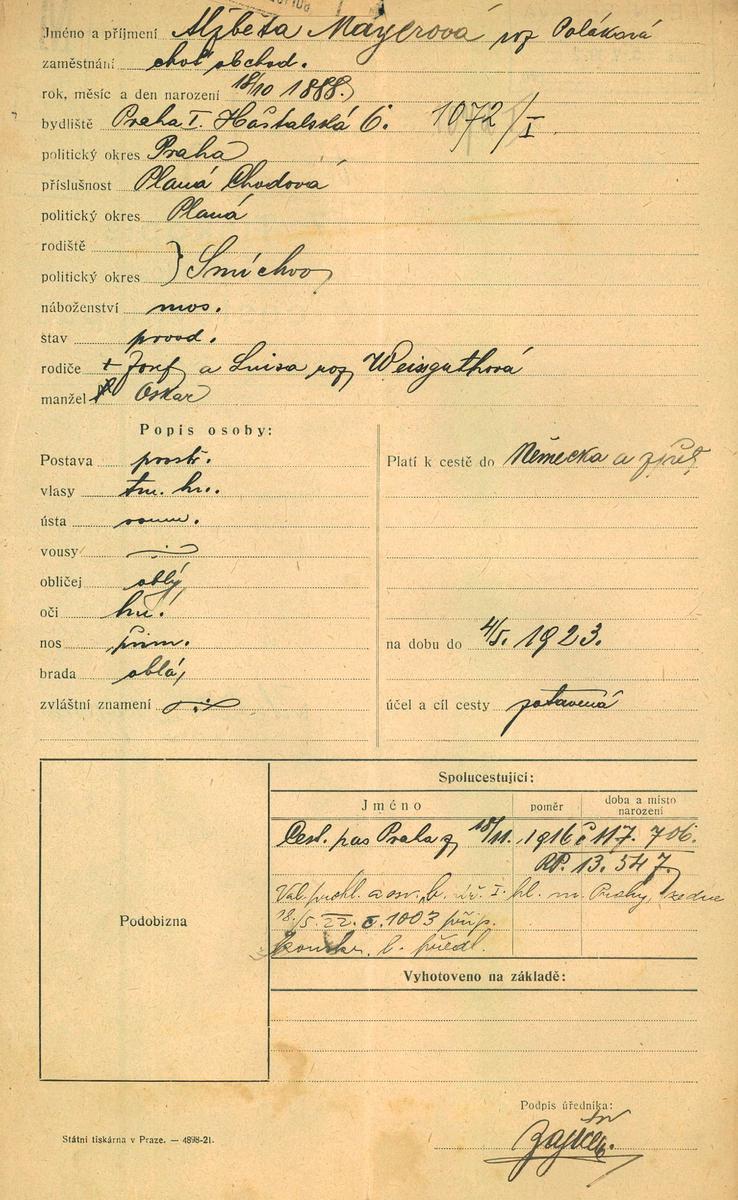 Jméno a příjmení Alžběta Mayerová roz Poláková
zaměstnání choť obchod.
rok, měsíc a den narození 18/10 1888.
bydliště Praha I. Haštalská 6. 1072/I
politický okres Praha
příslušnost Planá Chodová
politický okres Planá
rodiště
politický okres } Smíchov
náboženství mos.
stav provd.
rodiče + Josef a Luisa roz Weisguthová
manžel Oskar
Popis osoby:
Postava prostř.
vlasy tm. hn.
ústa soum.
vousy —
obličej oblý
oči hn.
nos přim.
brada oblá
zvláštní znamení
Platí k cestě do Německa a zpět
na dobu do 4/5. 1923.
účel a cíl cesty
Spolucestující:
Jméno poměr doba a místo narození
Cest. pas Praha z 18/11. 1916 č 117. 706.
RP. 13. 547.
hl. m. Prahy, ze dne
18./5. 22. č. 1003 příp.
b. předl.
Podobizna
Vyhotoveno na základě:
Podpis úředníka:
Státní tiskárna v Praze. — 4898-21.